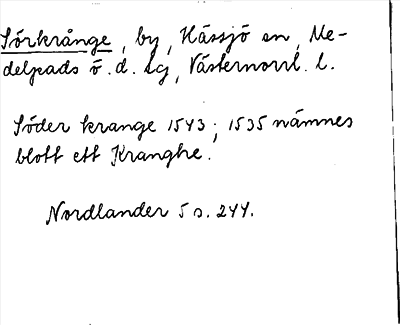 Sörkrånge, by, Hässjö sn, Me-
delpads ö. d. lg, Västernorrl. l.
Söder krange 1543; 1535 nämnes
blott ett Kranghe.
Nordlander 5 s. 244.